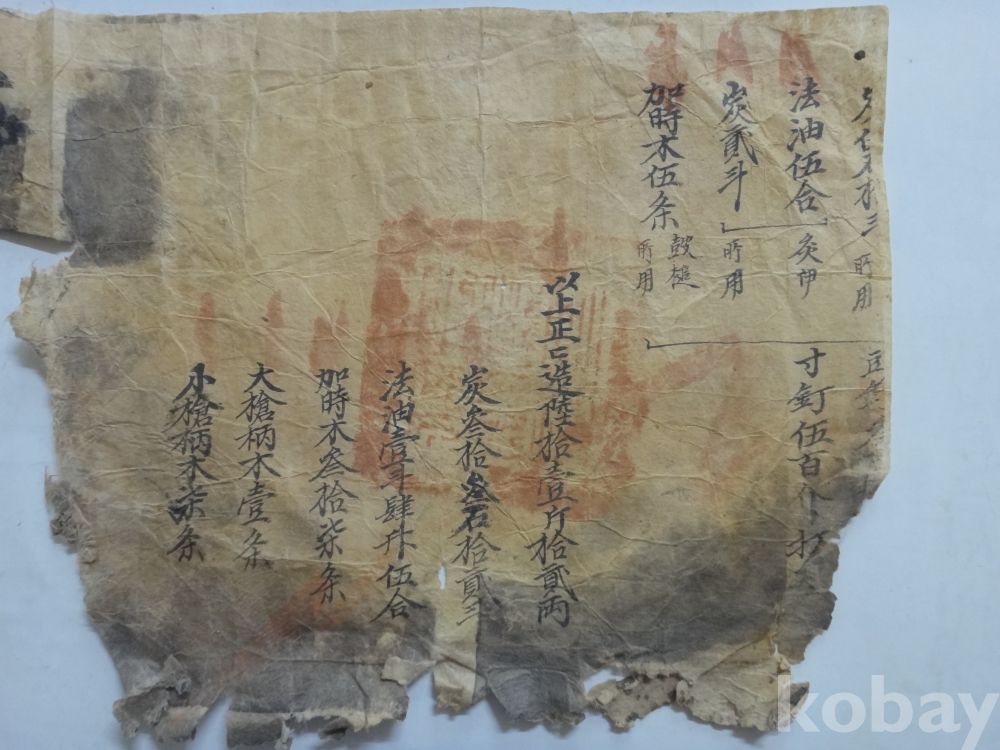 所用
法油伍合
灸
寸釘伍百个
炭貳斗
所用
加時木伍条
鼓槌
所用
以上正 造陸拾壹斤拾貳兩
炭叁拾叁石拾貳
法油壹斗肆升伍合
加時木叁拾柒条
大槍柄木壹条
小槍柄木柒条
kobay